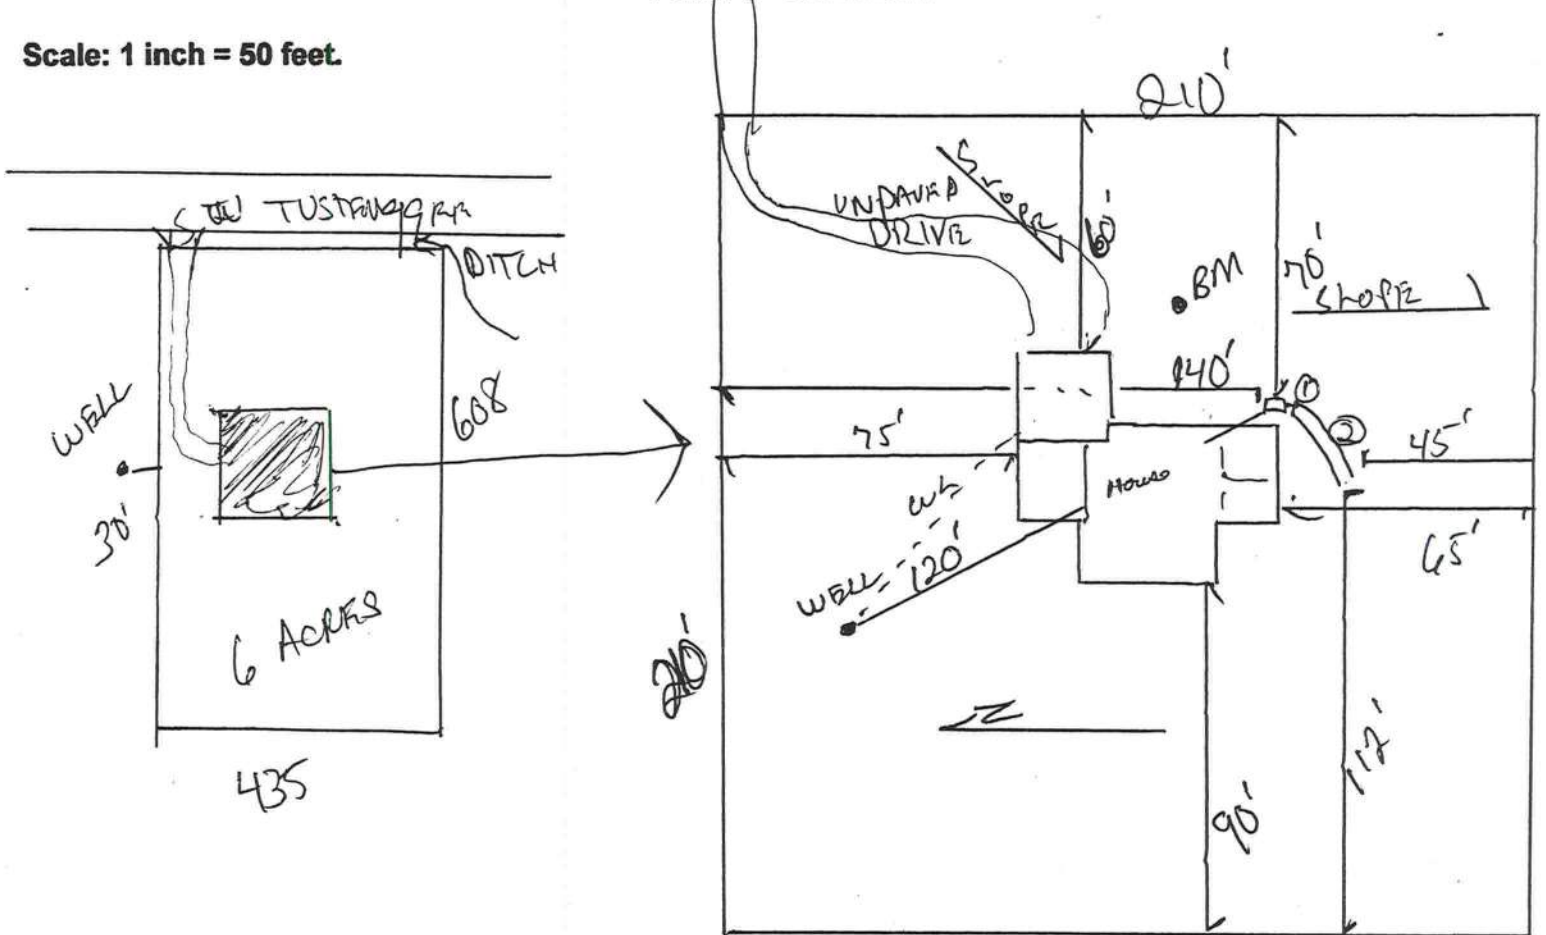 Scale: 1 inch = 50 feet.
SW TUSTENUGGEE
DITCH
WELL
30'
608
6 ACRES
435
210'
UNPAVED
DRIVE
SLOPE
60'
BM
70'
SLOPE
140'
1
2
75'
45'
House
WL
120'
WELL
65'
210'
N
90'
112'